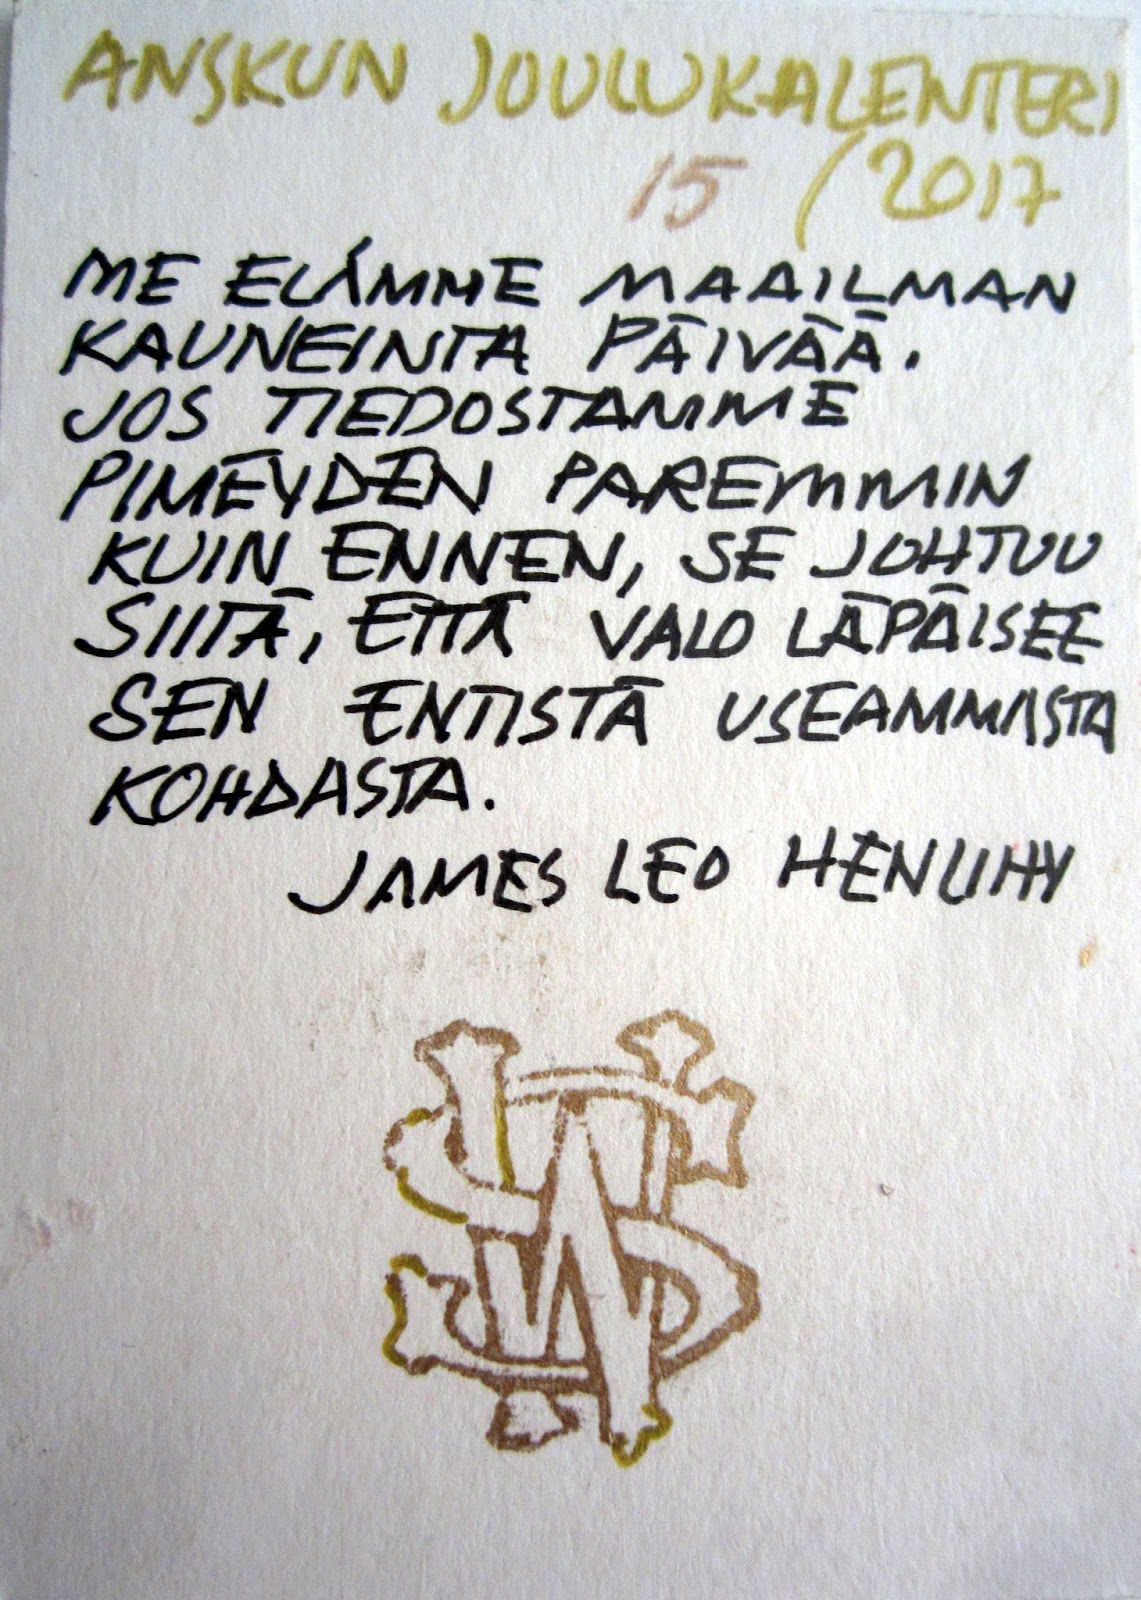 ANSKUN JOULUKALENTERI
15 /2017
ME ELÄMME MAAILMAN
KAUNEINTA PÄIVÄÄ.
JOS TIEDOSTAMME
PIMEYDEN PAREMMIN
KUIN ENNEN, SE JOHTUU
SIITÄ, ETTÄ VALO LÄPÄISEE
SEN ENTISTÄ USEAMMISTA
KOHDASTA.
JAMES LEO